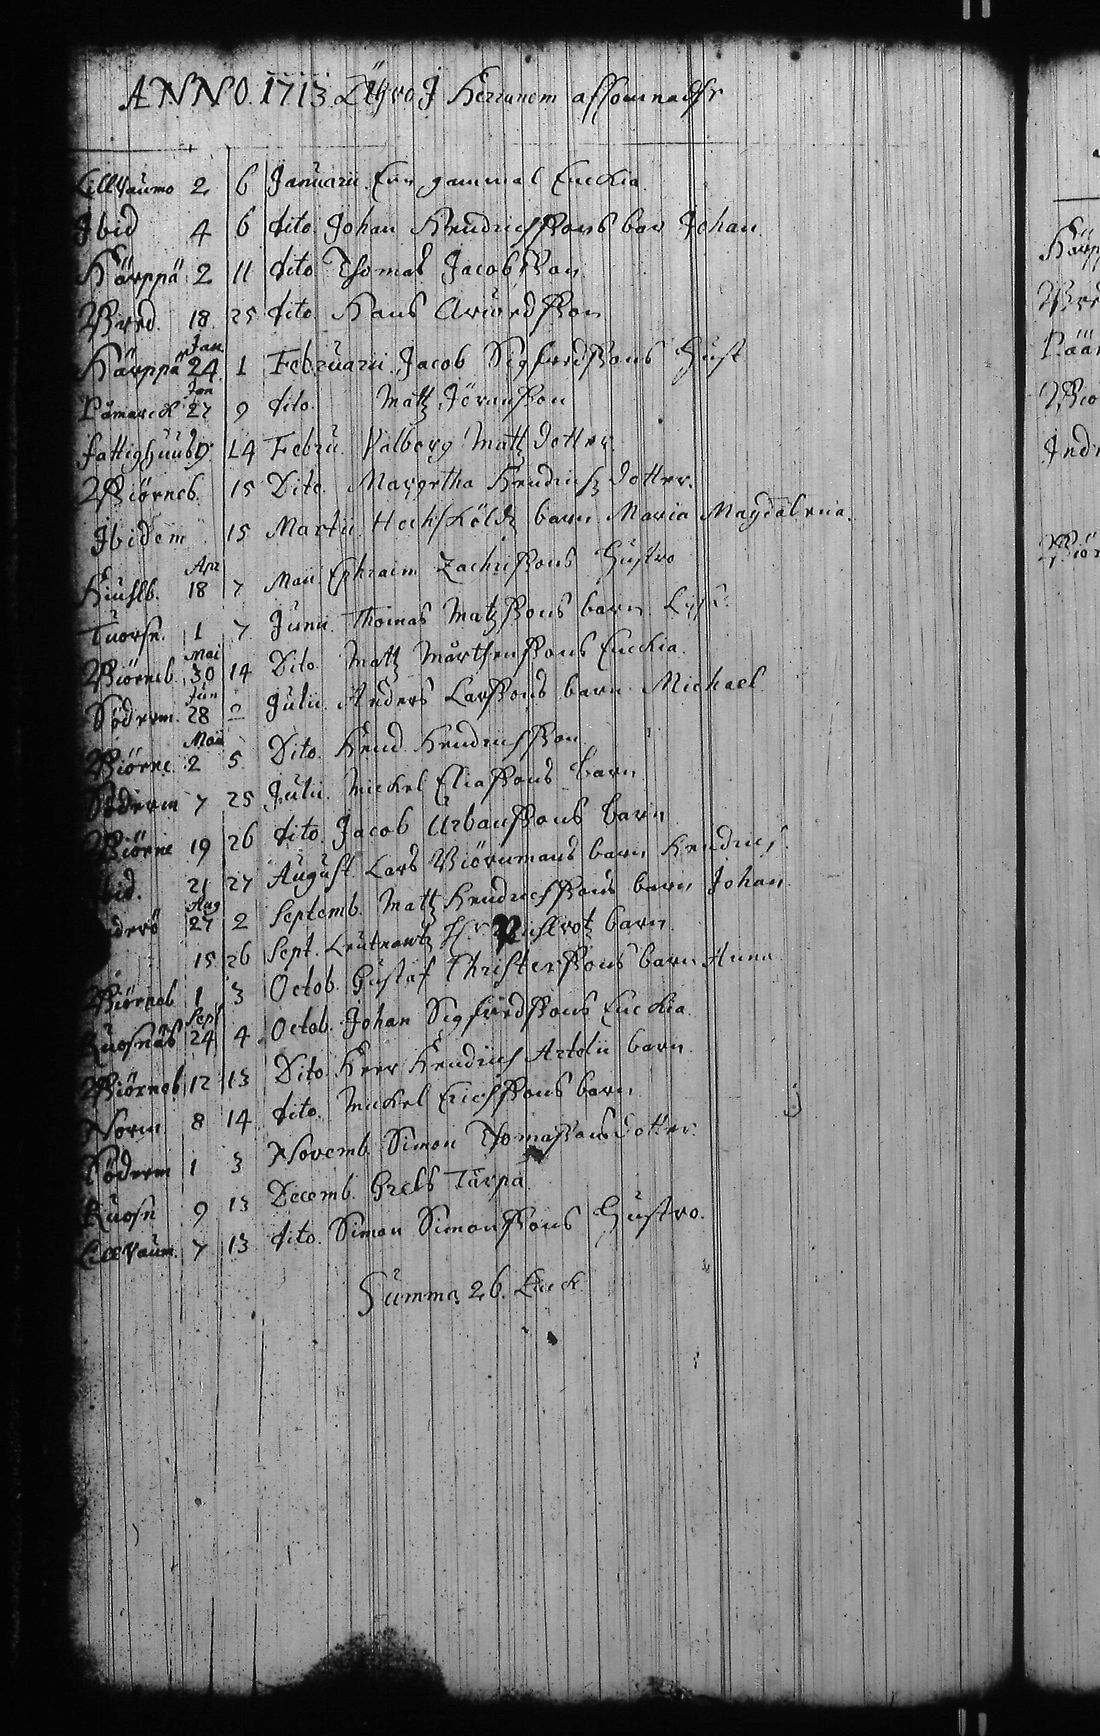 ANNO. 1713. Ähro J Herranom afsomnade
Lillraumo 2 6 Januarii. Een gammal Enckia
Jbid 4 6 dito. Johan Hendrichssons bar Johan
Kärppä 2 11 dito Thomas Jacobsson
18. 25 dito. Hans Arvedsson
Kärppä Jan 24 1 Februarii. Jacob Sigfredssons Hust
Påmarck Jan 27 9 dito. Matz Jöransson
fattighuus 9 14 Febru. Valborg Matz dotter.
Biörneb. 15 Dito. Margretha Hendrichz dotter.
Jbidem 15 Martii. barn Maria Magdalena.
Apr 18 7 Maii Ephraim Zachrissons Hustro
Tuorsn. 1 7 Junii. Thomas Matzssons barn.
Biörneb. Mai 30 14 Dito. Matz Mårthenssons Enckia.
Söderm. Jun 28 Julii. Anders Larssons barn Michael
Biörne. Maii 2 5 Dito. Hend. Hendrichsson
Söderm 7 25 Julii. Mickel Eliassons barn
Biörne 19 26 dito. Jacob Urbanssons barn
bid. 21 27 August. Lars Biörnmans barn Hendrich
Aug 27 2 Septemb. Matz Hendrichssons barn Johan
15 26 Sept. Leutnantz barn.
Biörneb 1 3 Octob. Gustaf Christerssons barn Anna
Ruosnäs Sept 24 4 Octob. Johan Sigfredssons Enckia.
Biörneb 12 13 Dito. Herr Hendrich barn
Norm. 8 14 dito. Mickel Erichssons barn
Söderm 1 3 Novemb. Simon Thomassons dotter.
Ruosn 9 13 Decemb. Grels Tärpä
Lillraum. 7 13 dito. Simon Simonssons Hustro.
Summa. 26.